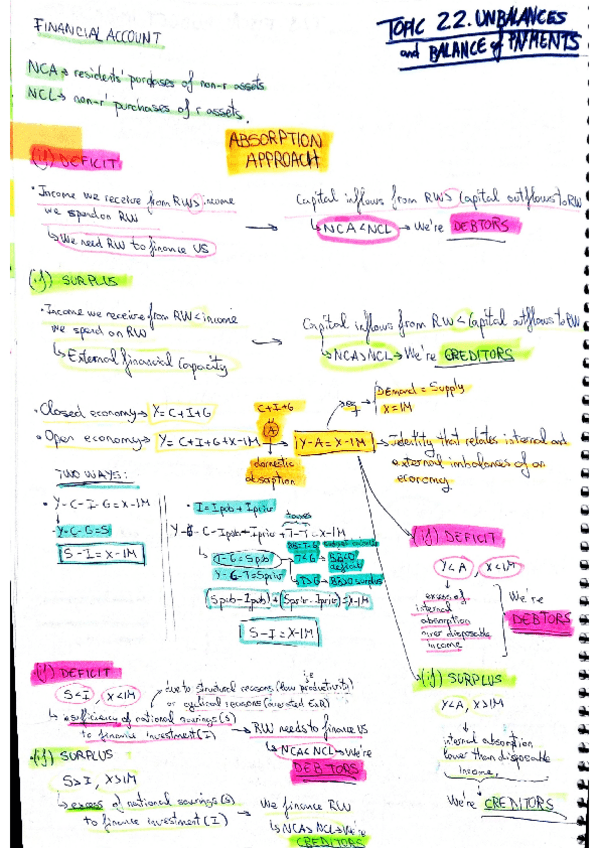 FINANCIAL ACCOUNT
TOPIC 2.2. UNBALANCES
and BALANCE of PAYMENTS
NCA → residents' purchases of non-r assets
NCL → non-r' purchases of r assets.
ABSORPTION
APPROACH
(if) DEFICIT
· Income we receive from RW > income
we spend on RW
↳ We need RW to finance US
→
Capital inflows from RW > Capital outflows to RW
↳ NCA < NCL → We're DEBTORS
(if) SURPLUS
· Income we receive from RW < income
we spend on RW
↳ External financial capacity
→
Capital inflows from RW < Capital outflows to RW
↳ NCA > NCL → We're CREDITORS
· Closed economy → Y = C+I+G
· Open economy → Y = C+I+G+X-IM
C+I+G
(A)
domestic
absorption
→ Y-A = X-IM
Demand = Supply
X = IM
→ identity that relates internal and
external imbalances of an
economy.
TWO WAYS:
· Y-C-I-G = X-IM
Y-C-G = S
S-I = X-IM
· I = Ipub + Ipriv
taxes
T-G = Spub
T<G →
deficit
T>G → surplus
(Spub-Ipub) + (Spriv-Ipriv) = X-IM
S-I = X-IM
(if) DEFICIT
Y<A, X<IM
excess of
internal
absorption
over disposable
income
We're
DEBTORS
(if) SURPLUS
Y<A, X>IM
internal absorption
lower than disposable
income.
We're CREDITORS
(if) DEFICIT
S<I, X<IM
due to structural reasons (low productivity)
or cyclical reasons
of national savings (S)
to finance investment (I)
→ RW needs to finance US
↳ NCA < NCL → We're
DEBTORS
· (if) SURPLUS
S>I, X>IM
↳ excess of national savings (S)
to finance investment (I)
→ We finance RW
↳ NCA > NCL → We're
CREDITORS